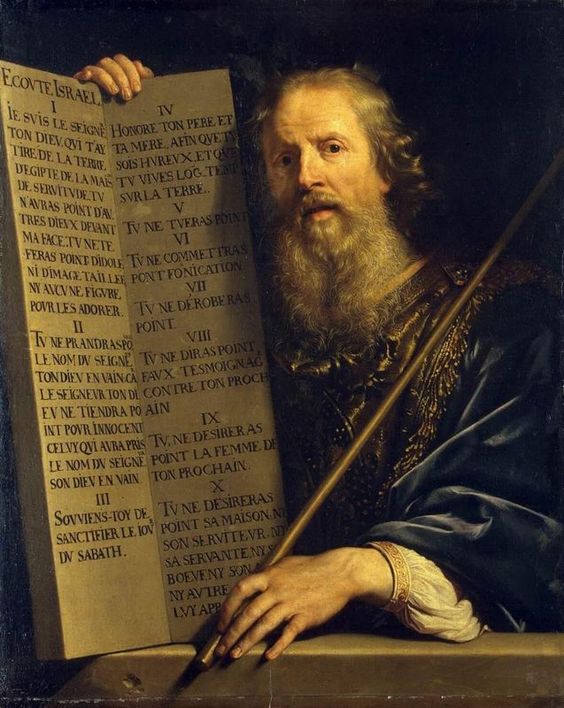 ECOVTE ISRAEL
I
IE SVIS LE SEIGNE
TON DIEV, QVI T'AY
TIRE DE LA TERRE
D'EGIPTE DE LA MAIS
DE SERVITVDE. TV
N'AVRAS POINT D'AV
TRES DIEVX DEVANT
MA FACE. TV NE TE
FERAS POINT D'IDOLE
NI D'IMAGE TAILLEE
NY AVCVNE FIGVRE
POVR LES ADORER.
II
TV NE PRANDRAS PO
LE NOM DV SEIGNE
TON DIEV EN VAIN. CA
LE SEIGNEVR TON DI
EV NE TIENDRA PO
INT POVR INNOCENT
CELVY QVI AVRA PRIS
LE NOM DV SEIGNE
SON DIEV EN VAIN
III
SOVVIENS-TOY DE
SANCTIFIER LE IOV
DV SABATH.
IV
HONORE TON PERE ET
TA MERE, AFIN QVE TV
SOIS HVREVX, ET QVE
TV VIVES LOG-TEMP
SVR LA TERRE.
V
TV NE TVERAS POINT
VI
TV NE COMMETTRAS
PONT FONICATION.
VII
TV NE DÉROBERAS
POINT.
VIII
TV NE DIRAS POINT
FAVX TESMOIGNAG
CONTRE TON PROCH
AIN
IX
TV, NE DESIRERAS
POINT LA FEMME DE
TON PROCHAIN.
X
TV NE DESIRERAS
POINT SA MAISON, NY
SON SERVITEVR, NY
SA SERVANTE, NY S
BOEVF, NY SON
NY AVTRE
LVY APP